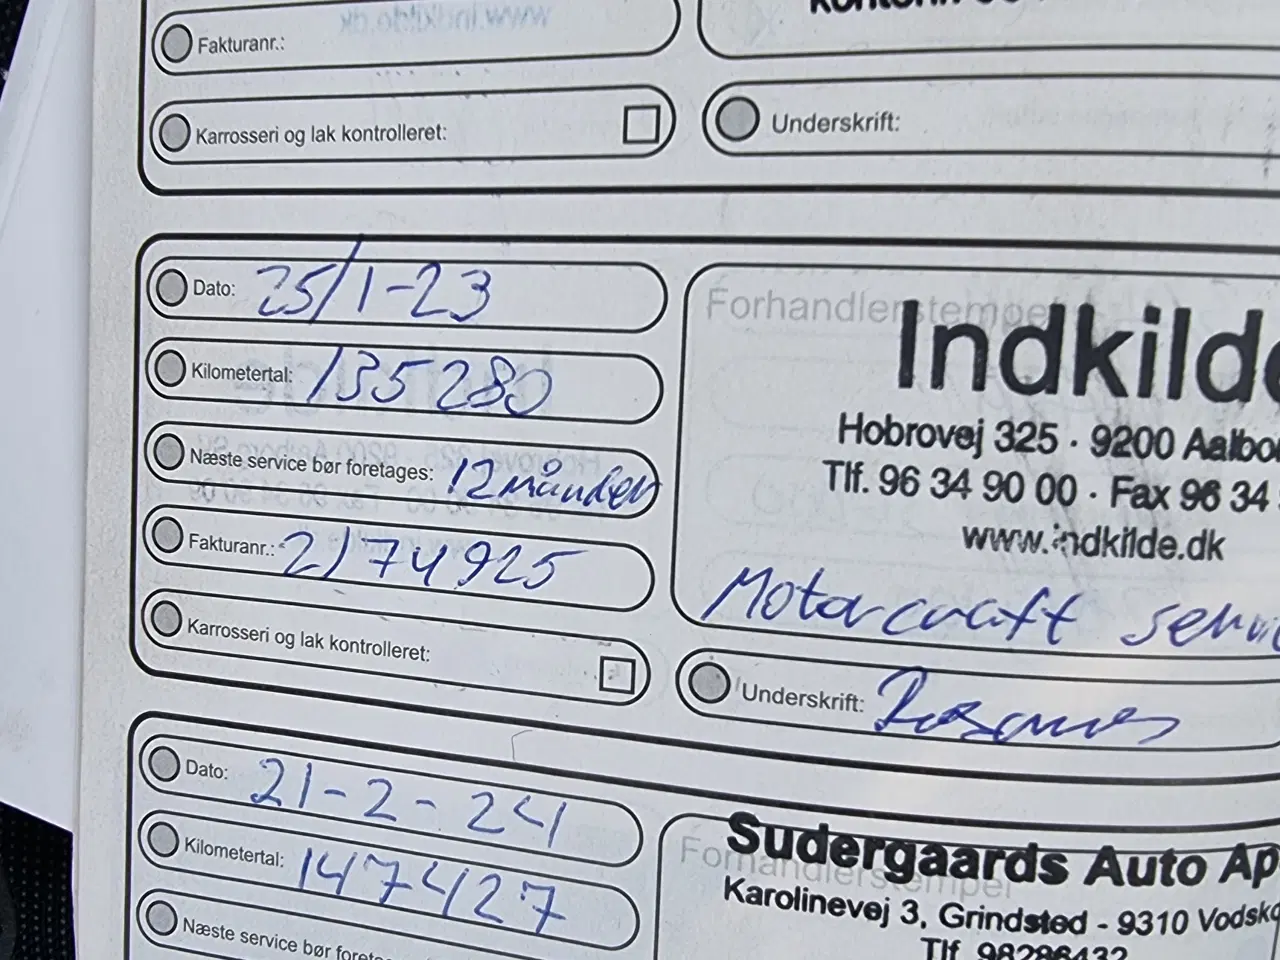 Fakturanr.:
Karrosseri og lak kontrolleret:
Underskrift:
Dato: 25/1-23
Kilometertal: 135280
Næste service bør foretages: 12 måneder
Fakturanr.: 2174925
Karrosseri og lak kontrolleret:
Forhandlerstempel
Indkilde
Hobrovej 325 · 9200 Aalbo
Tlf. 96 34 90 00 · Fax 96 34
www.indkilde.dk
Motorcraft servi
Underskrift:
Dato: 21-2-24
Kilometertal: 147427
Næste service bør foreta
Forhandlerstempel
Sudergaards Auto Ap
Karolinevej 3, Grindsted - 9310 Vodsko
Tlf. 98286432